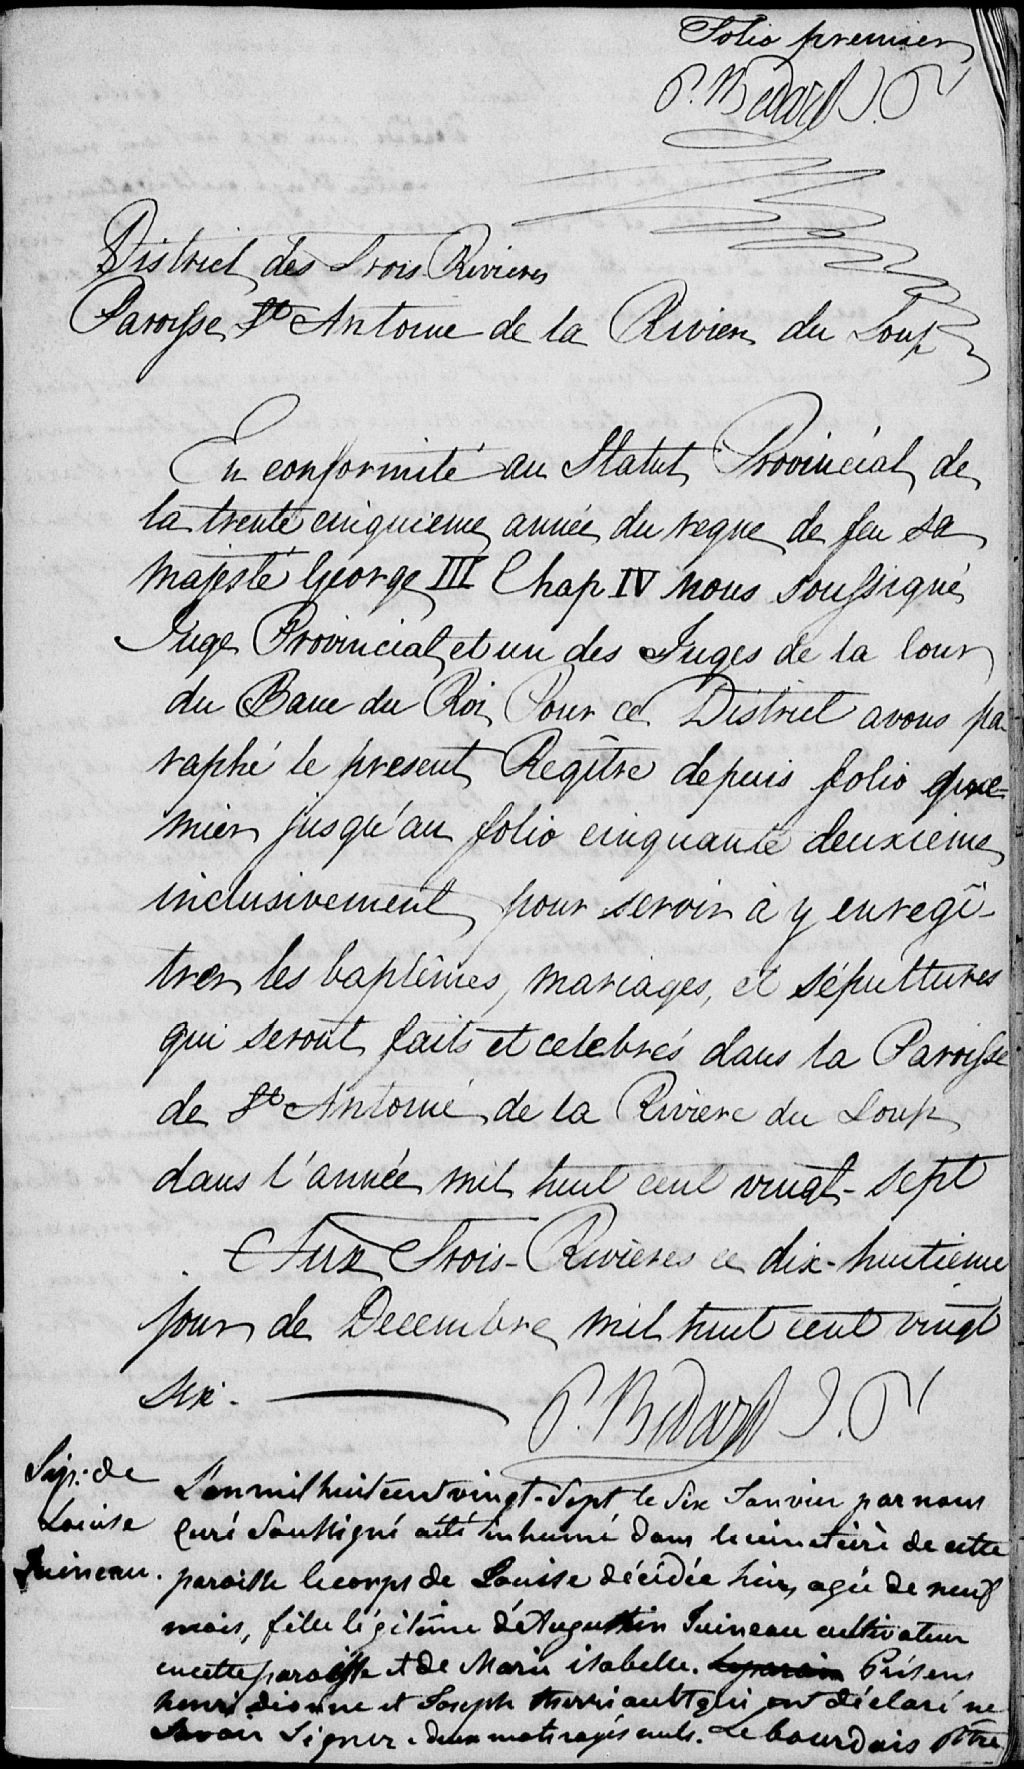 Folio premier
P. Bedard J. P
District des Trois Rivieres
Paroisse St Antoine de la Riviere du Loup
En conformité au Statut Provincial de
la trente cinquieme année du regne de feu Sa
majesté George III Chap IV nous soussigné
Juge Provincial et un des Juges de la Cour
du Banc du Roi Pour ce District avons pa-
raphé le present Regître depuis folio pre-
mier jusqu'au folio cinquante deuxieme
inclusivement pour servir à y enregî-
trer les baptêmes, mariages, et sépultures
qui seront faits et celebrés dans la Paroisse
de St Antoine de la Riviere du Loup
dans l'année mil huit cent vingt-sept
Aux Trois-Rivières ce dix-huitieme
jour de Decembre mil huit cent vingt
six.
P. Bedard J. P
Sep: de
Louise
Juineau.
L'an mil huit cent vingt-Sept le Six Janvier par nous
Curé Soussigné a été inhumé dans le cimetière de cette
paroisse le corps de Louise décédée hier, agée de neuf
mois, fille légitime d'Augustin Juineau cultivateur
en cette paroisse et de Marie isabelle. Présens
henri dionne et Joseph therriault qui ont déclaré ne
Savoir Signer. deux mots rayés nuls. Lebourdais Ptre